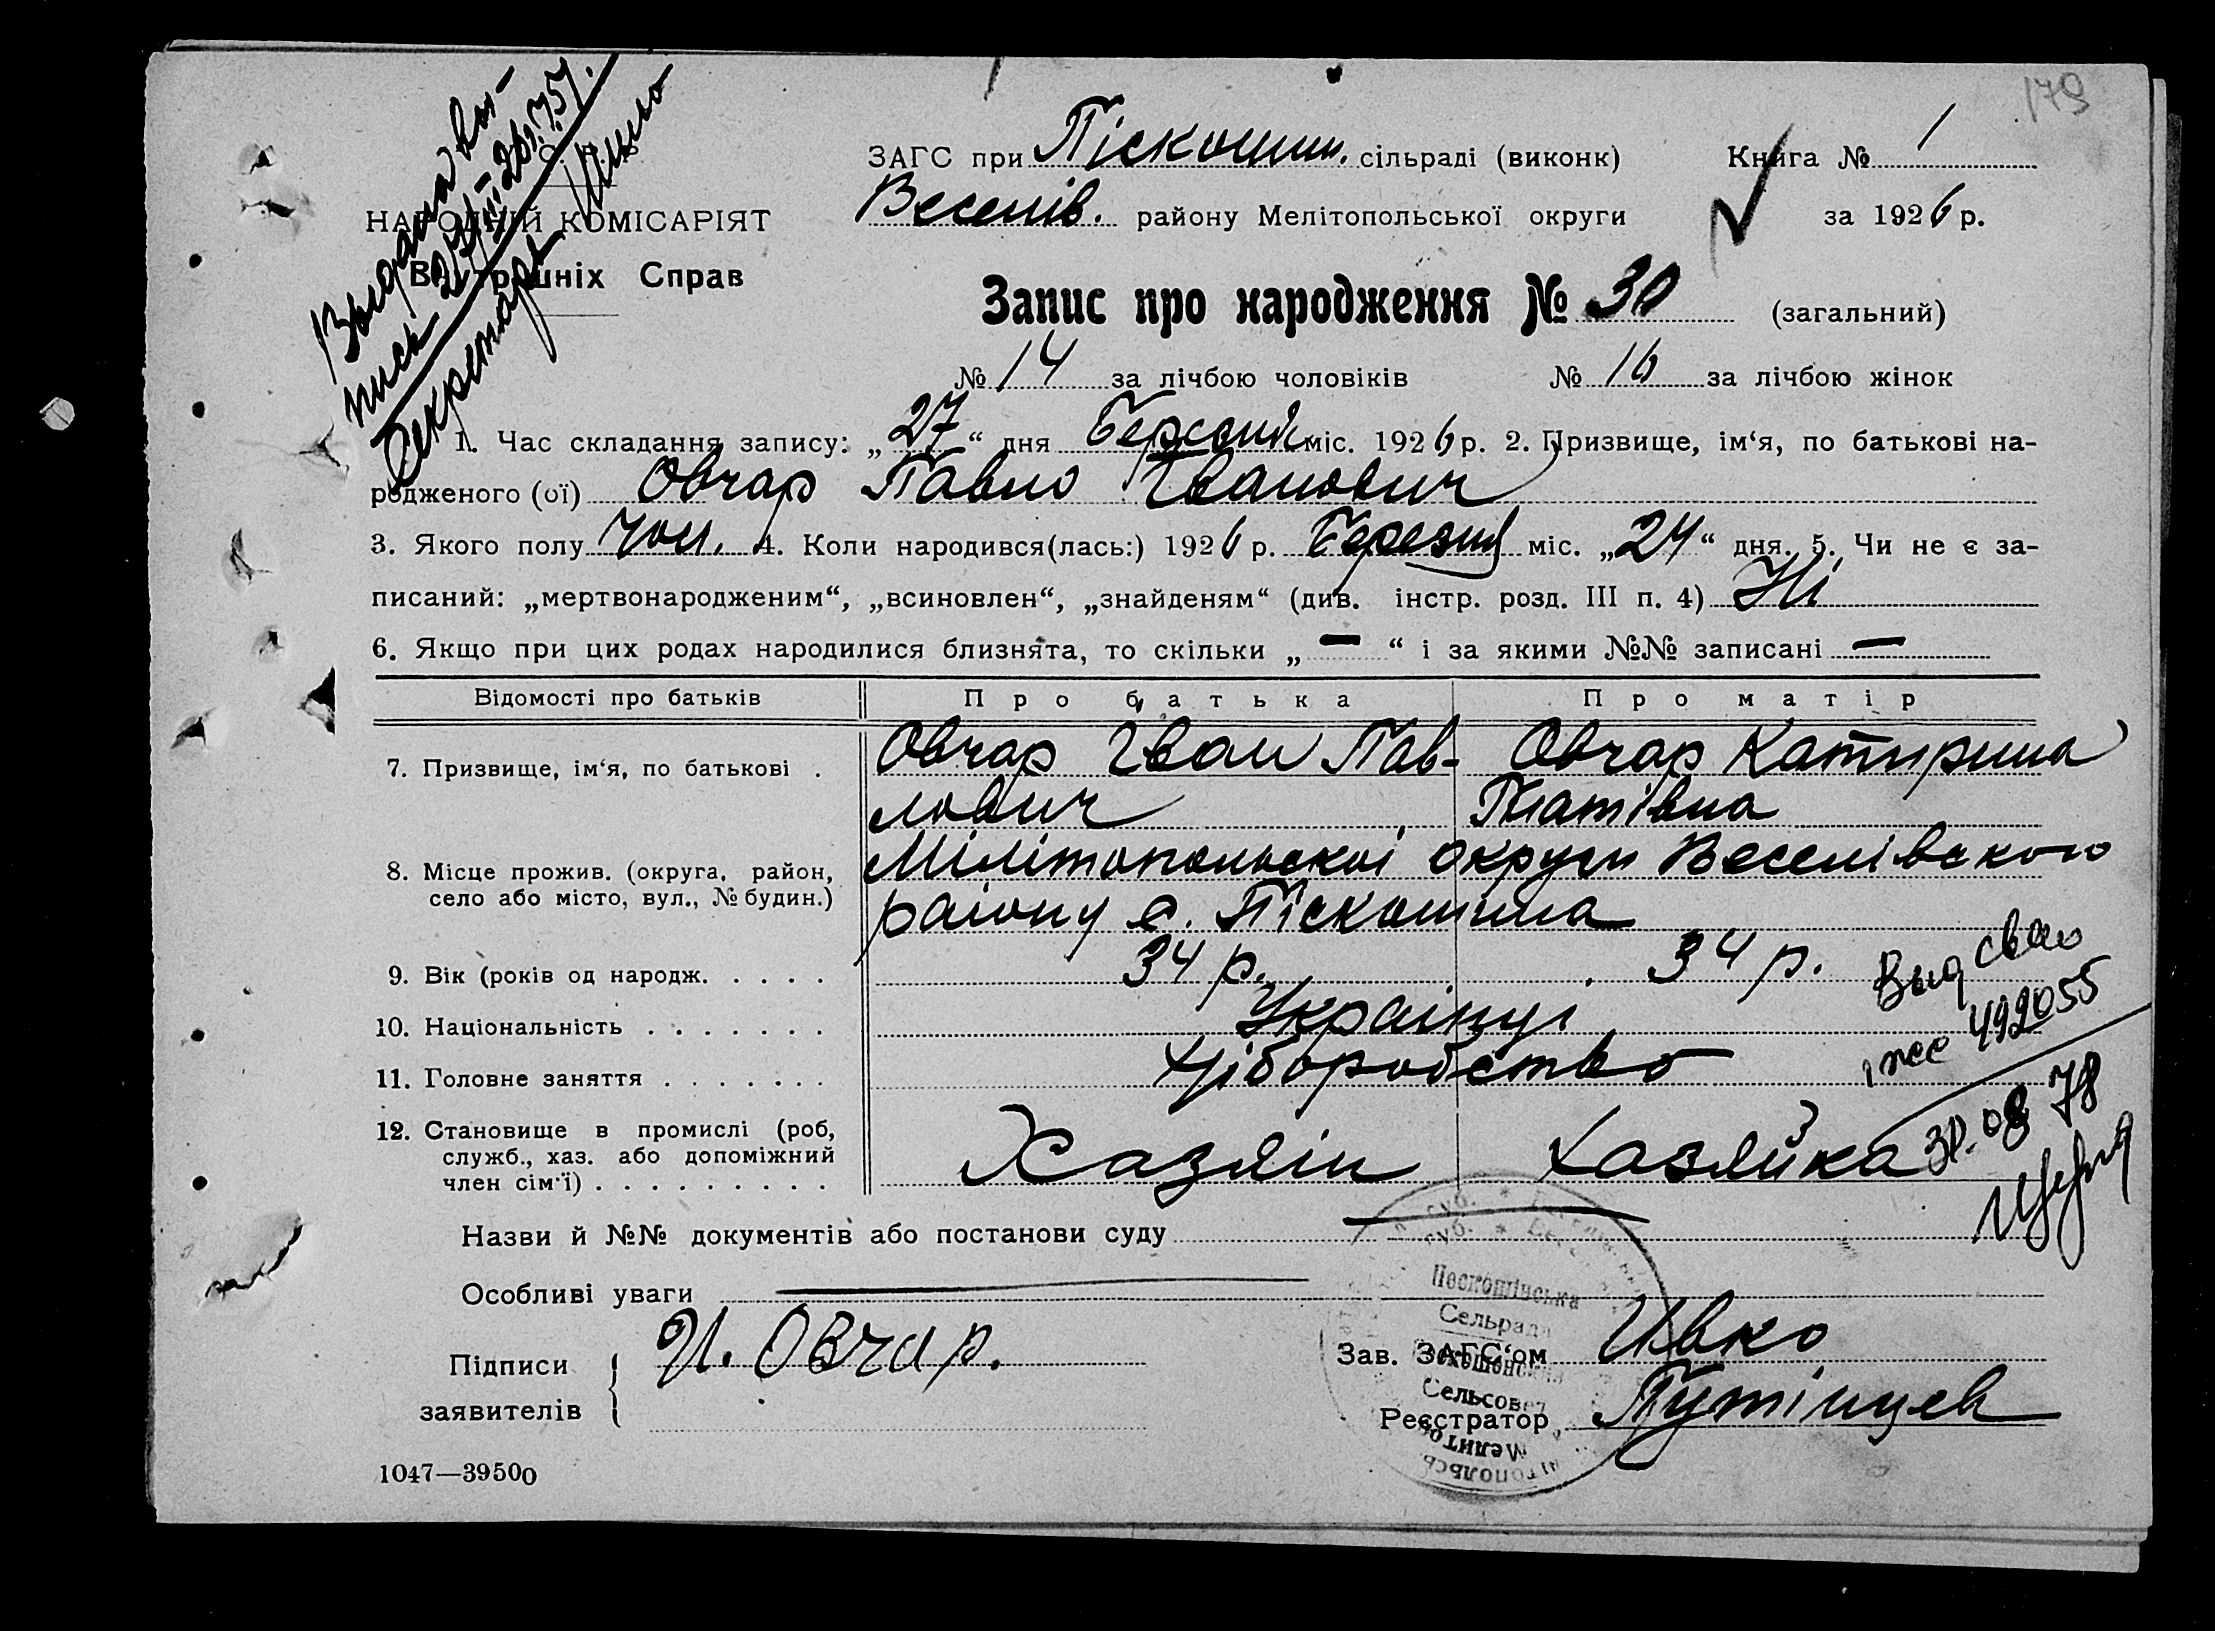 179
Выдана вы-
пись
Секретарь
ЗАГС при Піскошин. сільраді (виконк) Книга № 1
Веселів. району Мелітопольської округи за 1926 р.
НАРОДНІЙ КОМІСАРІЯТ
Внутрішніх Справ
Запис про народження № 30 (загальний)
№ 14 за лічбою чоловіків № 16 за лічбою жінок
1. Час складання запису: „27“ дня Березня міс. 1926 р. 2. Призвище, ім‘я, по батькові на-
родженого (ої) Овчар Павло Іванович
3. Якого полу чол. 4. Коли народився(лась:) 1926 р. Березня міс. „24“ дня. 5. Чи не є за-
писаний: „мертвонародженим“, „всиновлен“, „знайденям“ (див. інстр. розд. III п. 4) Ні
6. Якщо при цих родах народилися близнята, то скільки „—“ і за якими №№ записані —
Відомості про батьків Про батька Про матір
7. Призвище, ім‘я, по батькові . Овчар Іван Пав- Овчар Катирина
лович Гнатівна
8. Місце прожив. (округа, район, Мілітопольскої округи Веселівского
село або місто, вул., № будин.) району с. Піскошина
9. Вік (років од народж. . . . . 34 р. 34 р.
10. Національність . . . . . . . Українці
11. Головне заняття . . . . . . . Хліборобство
12. Становище в промислі (роб,
служб., хаз. або допоміжний Хазяін Хазяйка
член сім‘ї) . . . . . . . . .
Выд
492055
30.08 78
Назви й №№ документів або постанови суду
Особливі уваги
Підписи И. Овчар.
заявителів
Зав. ЗАГС‘ом Ивко
Реєстратор Путінцев
Сельрада
Сельсовет
1047—39500